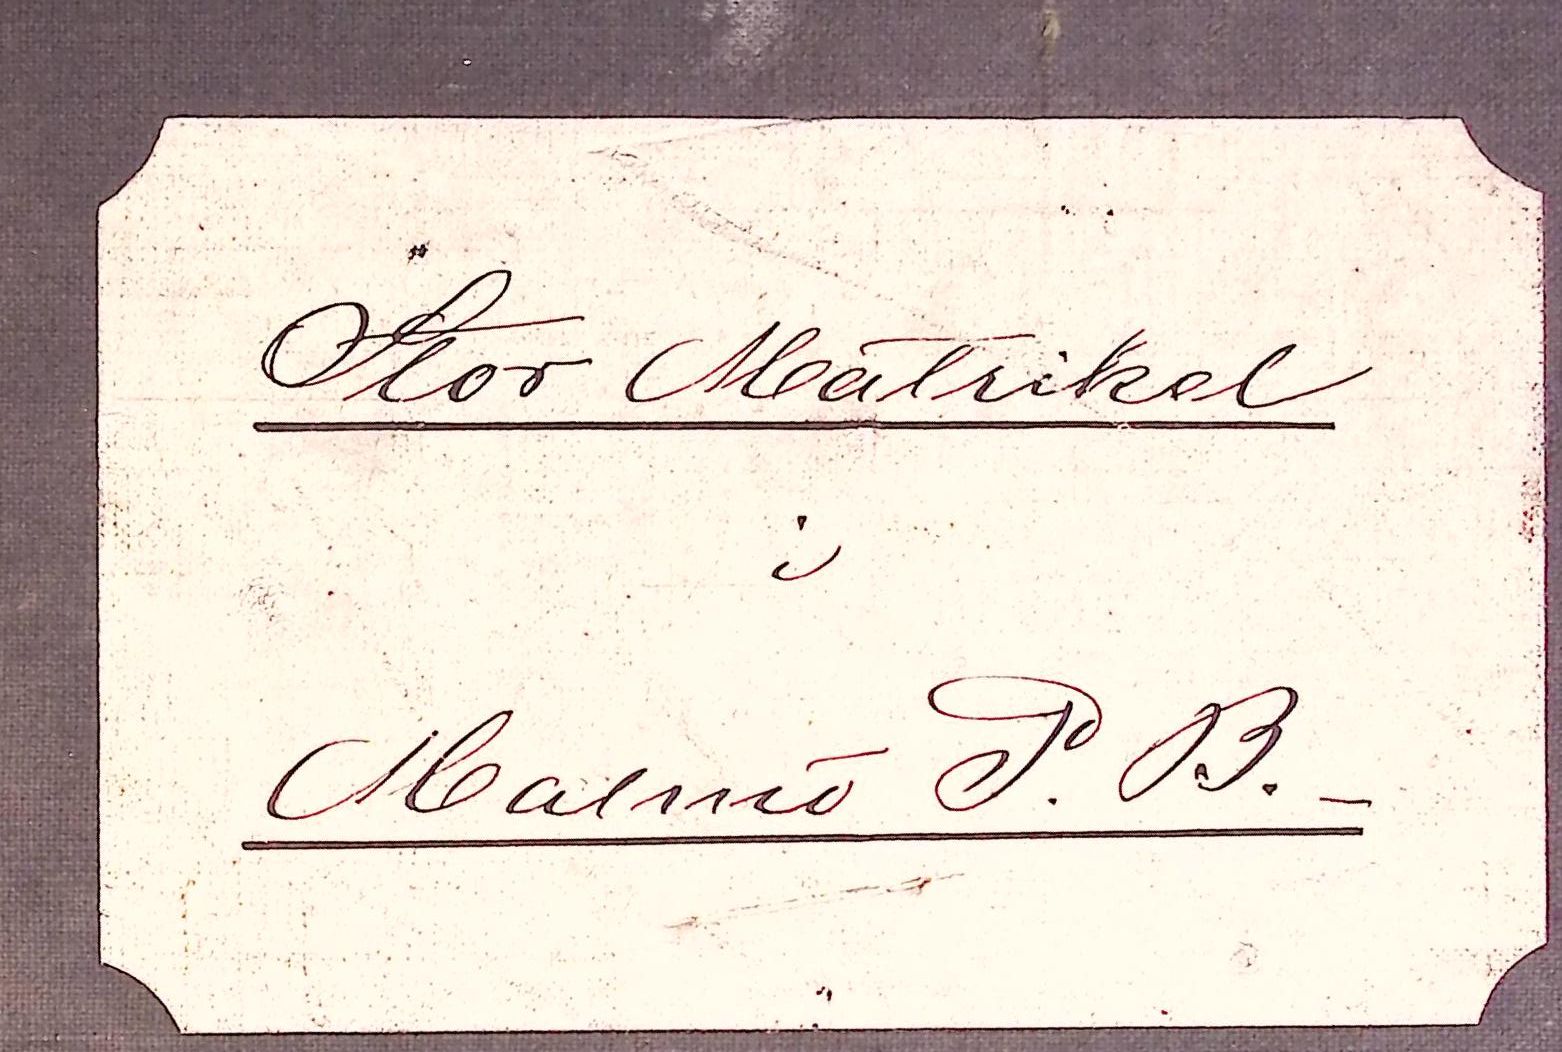 Stor Matrikel
i
Malmö P. B. –